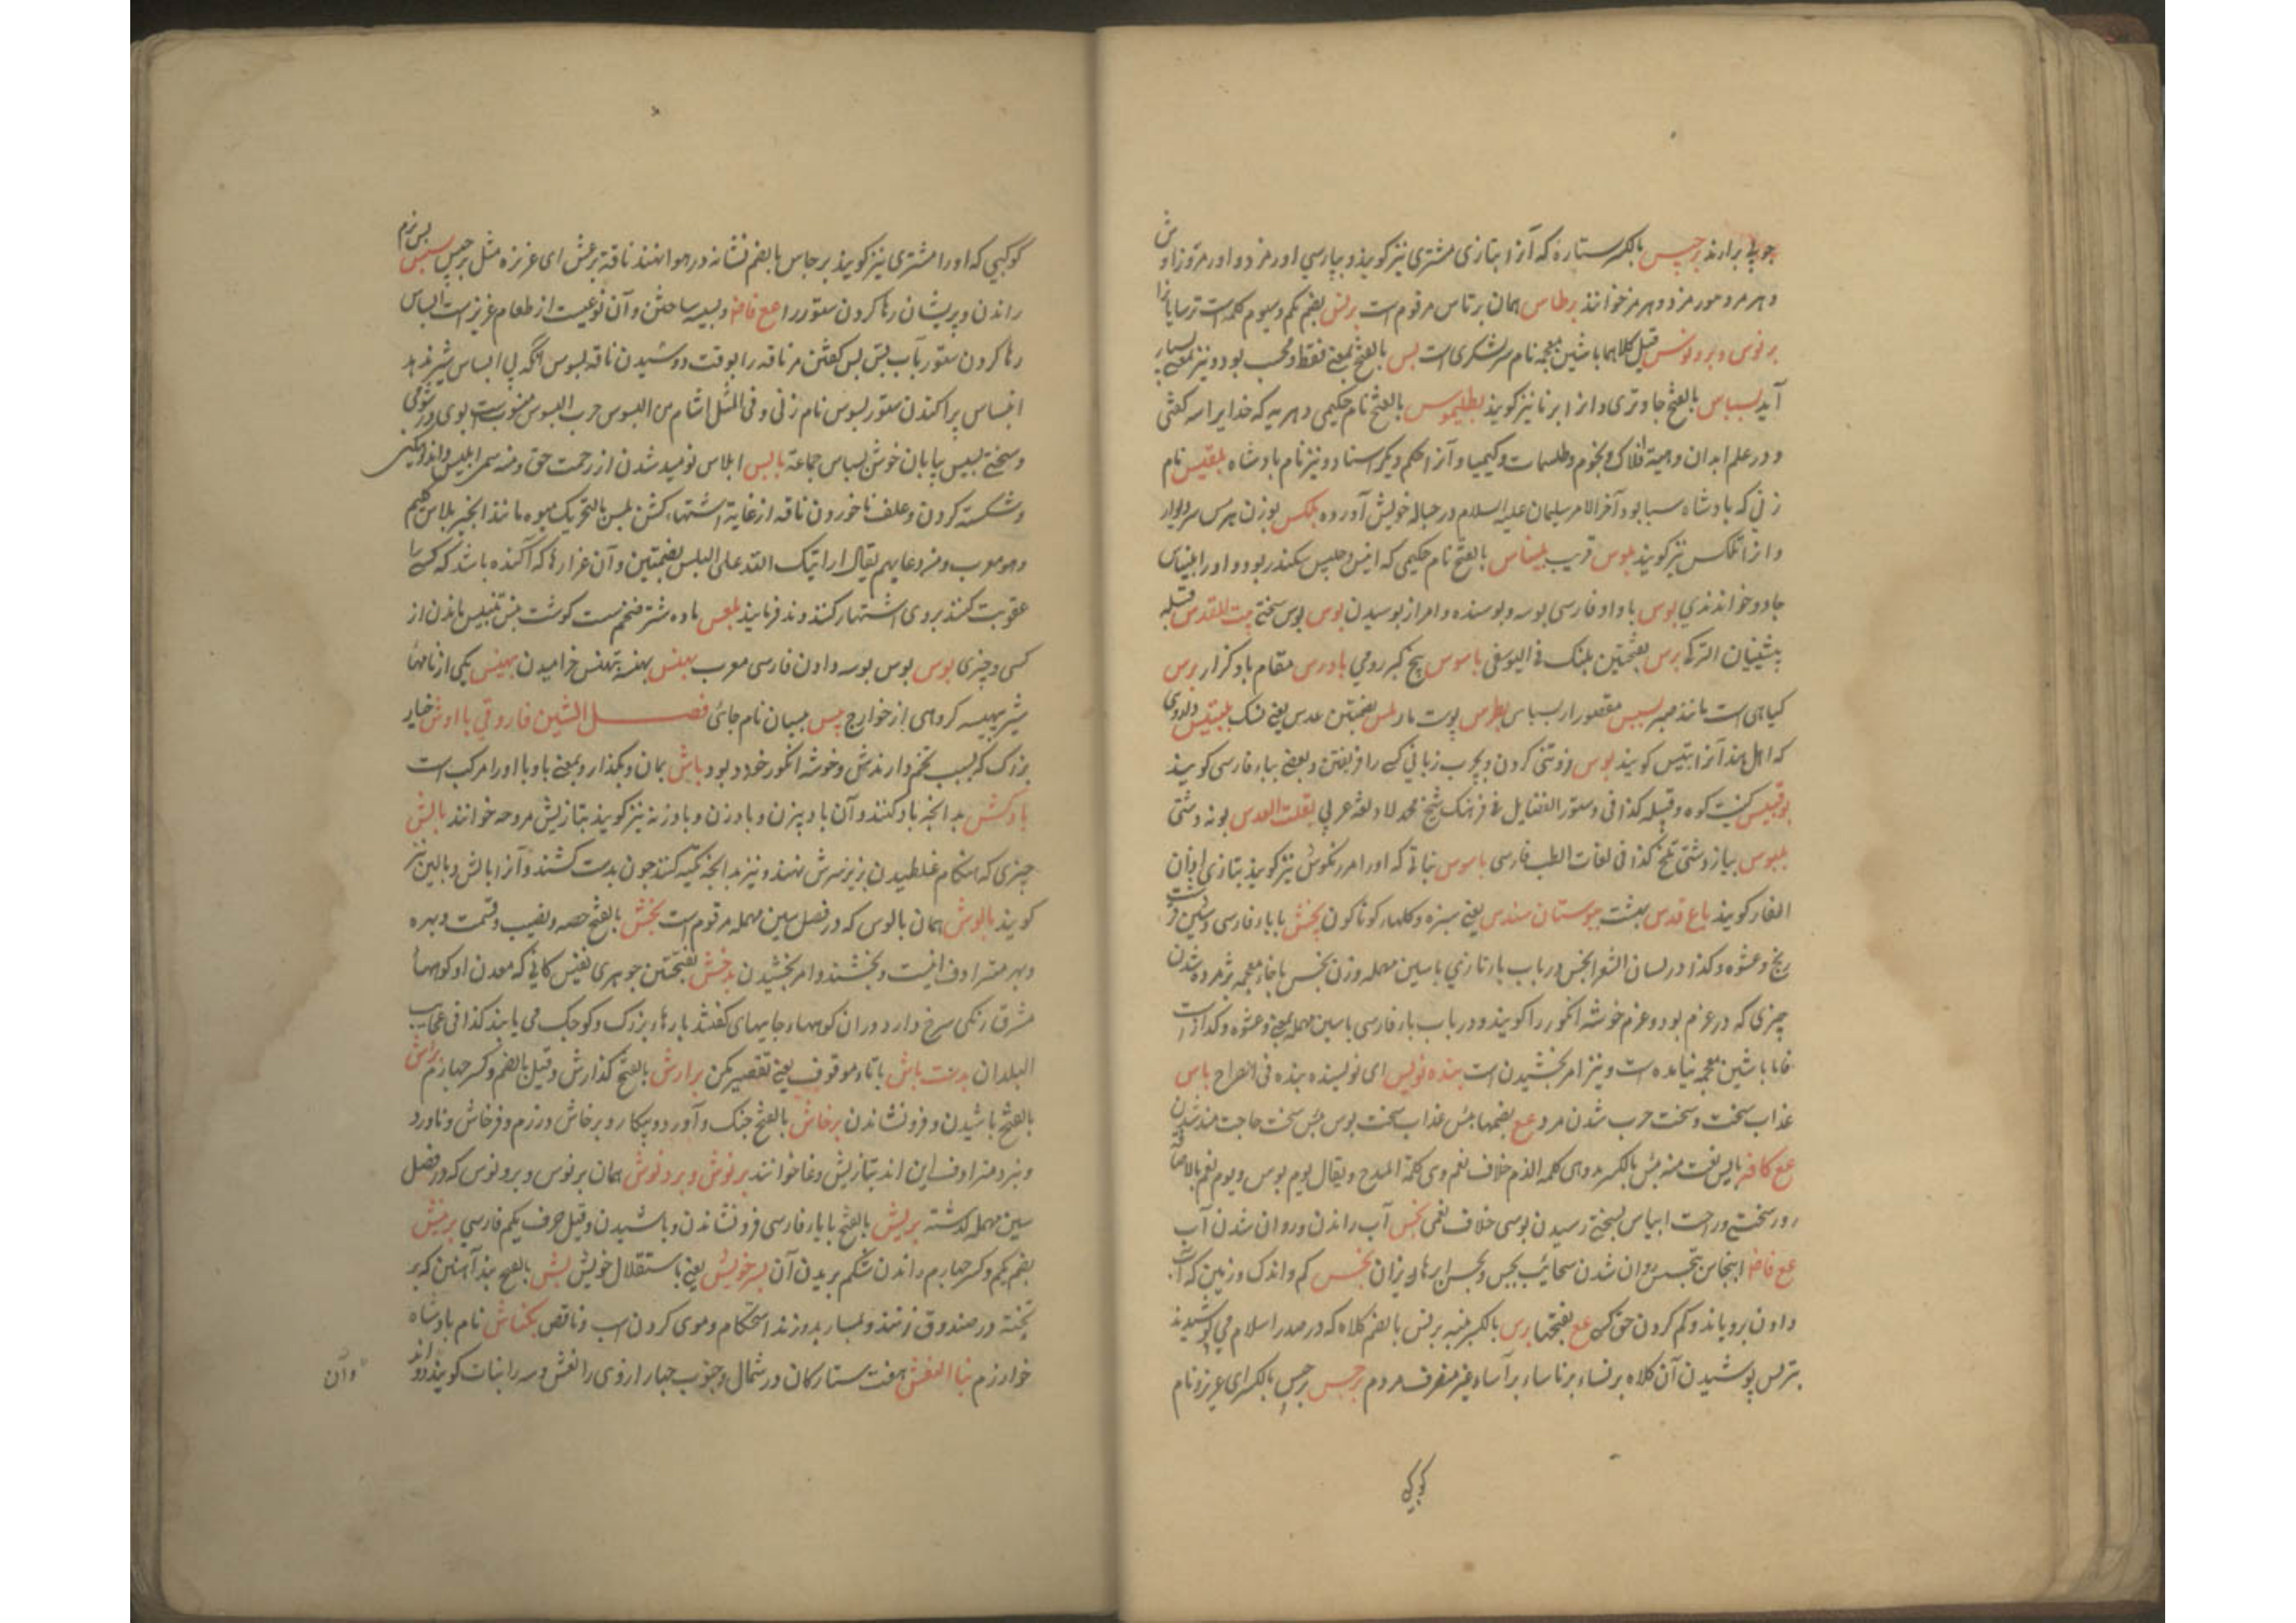 چوپا برارند برجیس بالکسر ستاره که آنرا بتازی مشتری نیز گویند و بپارسی اورمزد و اورمز و زاوش
و هرمز و هورمزد و هرمز خوانند برطاس همان برتاس مرقوم است برنس بضم یکم و سیوم کلاه است ترسایانرا
برنوس و بردنوس قیل کلاهما با شین معجمه نام سر لشکری است بس بالفتح بمعنی فقط و محسب بود و نیز بمعنی بسیار
آید بسباس بالفتح جاوتری و انرا بزباز نیز گویند بطلیموس بالفتح نام حکیمی دهریه که خدایرا سه گفتی
و در علم ابدان و هیئة افلاک و نجوم و طلسمات و کیمیا و آنرا حکم دیگر استاد و نیز نام بادشاه بلقیس نام
زنی که بادشاه سبا بود آخر الامر سلیمان علیه السلام در حباله خویش آورده بلکس بوزن هرس سر دیوار
و انرا بلکس نیز گویند بلوس فریب بلیناس بالفتح نام حکیمی که انیس و جلیس سکندر بود و او را بلیناس
جادو خواندندی بوس با واو فارسی بوسه و بوسنده و امر از بوسیدن بوس بوس سختی بیت المقدس قبله
پیشینیان الترکی برس بضمتین پلنک فی الیوسفی باسوس پنج کبر رومی بادرس مقام باد گزار برس
گیاهی است مانند صبر بسبس مقصور از بسباس بطرس پوست مار بلس بضمتین عدس یعنی نسک بلبتیس داروی
که اهل هند آنرا اتیس گویند بوس فروتنی کردن و بچرب زبانی کسی را فریفتن و بعضی بباء فارسی گویند
بوقبیس کنیت کوه و قبیله کذا فی دستور الفضایل فی فرهنگ شیخ محمد لاد لغة عربی بقلة القدس بونه دشتی
بلبوس پیاز دشتی تلخ کذا فی لغات الطب فارسی باسوس نباتی که او را مرزنگوش نیز گویند بتازی اذان
الفار گویند باغ قدس بهشت بوستان سندس یعنی سبزه و گلهاء گوناگون پخش با باء فارسی و شین قرشت
رنج و عشوه و کذا در لسان الشعرا بخس در باب باء تازی با سین مهمله وزن نخس با خاء معجمه پژمرده شدن
چیزی که در غژم بود و غژم خوشه انگور را گویند و در باب باء فارسی با سین مهمله بمعنی و عشوه و گداز است
فاما با شین معجمه نیامده است و نیز امر بخشیدن است بنده نویس ای نویسنده بنده فی الصراح باس
عذاب سخت و سخت حرب شدن مرد عع بضمها بئس عذاب سخت بوس بئس سخت حاجت مند شدن
عع کافة بایس نعت منه بئس بالکسر بد وهی کلمة الذم خلاف نعم وی کلمة المدح و یقال یوم بوس و یوم نعم بالاضافة
روز سختی و راحت ابیاس بسختی رسیدن بوسی خلاف نعمی بجس آب راندن و روان شدن آب
عع فاضا انبجاس تبجس روان شدن سحائب بجس و بجس ابرهاء ریزان بخس کم و اندک و زمین که آب
دادن برویاند و کم کردن حق کسی عع بفتحها برس بالکسر پنبه برنس بالضم کلاه که در صدر اسلام می پوشیدند
تبرنس پوشیدن آن کلاه برنساء برناساء برآساء غیر منصرف مردم برجس برجیس بالکسر ای عزیز و نام
کوکبی
کوکبی که او را مشتری نیز گویند برجاس ها بضم نشانه در هوا نهند ناقة برعس ای عزیزه مثل برجیس بسبس بس نرم
راندن و پریشان رها کردن ستور را عع فاضا و بسیسه ساختن و آن نوعیست از طعام عزیز است ابساس
رها کردن ستور بآب بس بس گفتن مر ناقه را بوقت دوشیدن ناقه بسوس انکه بی ابساس شیر ندهد
انبساس پراکندن ستور بسوس نام زنی و فی المثل اشام من البسوس حرب البسوس منسوب است بوی در شومی
و سختی بسبس بیابان خوش بسباس جماعة بابس ابلاس نومید شدن از رحمت حق و منه سمی ابلیس و اندوهگین
و شکسته کردن و علف ناخوردن ناقه از غایة اشتهاء گشن بلس بالتحریک میوه مانند انجیر بلاس گلیم
و هو معرب و من دعایهم یقال اراینک الله علی البلس بضمتین و آن غرارها که آکنده باشند که کسی را
عقوبت کنند بروی اشتهار کنند و ندا فرمایند بلعس ماده شتر ضخم سست گوشت بنس تبنیس ماندن از
کسی و چیزی بوس بوس بوسه دادن فارسی معرب بهنس بهنسه تبهنس خرامیدن بیهس یکی از نامهاء
شیر بیهسیه گروهی از خوارج بیس بیسان نام جای فصل الشین فاروقی باوش خیار
بزرگ که بسبب تخم دارندش و خوشه انگور خورد بود باش بمان و بگذار و بمعنی با وبا او را مرکب است
بادکش بد انچه باد کنند و آن بادبیزن و بادزن و بادزنه نیز گویند بتازیش مروحه خوانند بالش
چیزی که هنگام غلطیدن بزیر سرش نهند و نیز بد انچه تکیه کنند چون بدست کشند و آنرا بالش و بالین نیز
گویند بالوش همان بالوس که در فصل سین مهمله مرقوم است بخش بالفتح حصه و نصیب و قسمت و بهره
و بهر مترادف اینست و بخشند و امر بخشیدن بدخش بفتحتین جوهری نفیس کانی که معدن او کوههاء
مشرق رنگی سرخ دارد و ران کوهها جابیهای کفتند پارهاء بزرگ و کوچک می یابند کذا فی عجایب
البلدان بدست باش با تاء موقوف یعنی تقصیر مکن برارش بالفتح گذارش و قیل بالضم و کسر چهارم براش
بالفتح پاشیدن و فرونشاندن برخاش بالفتح جنگ و آورد و پیکار و برخاش و رزم و فرخاش و ناورد
و نبرد مترادف این اند بتازیش وغا خوانند برنوش و بردنوش همان برنوس و بردنوس که در فصل
سین مهمله گذشته بریش بالفتح با یاء فارسی فرونشاندن و پاشیدن و قیل حرف یکم فارسی برینش
بضم یکم و کسر چهارم راندن شکم بریدن آن بسر خویش یعنی باستقلال خویش بش بالفتح بند آهنین که بر
تخته در صندوق زنند و بمسمار بدوزند استحکام و موی گردن اسب و ناقص بکتاش نام بادشاه
خوارزم بنات النعش هفت ستارگان در شمال و جنوب چهار از وی را نعش و سه را بنات گویند و دو اند
وآن